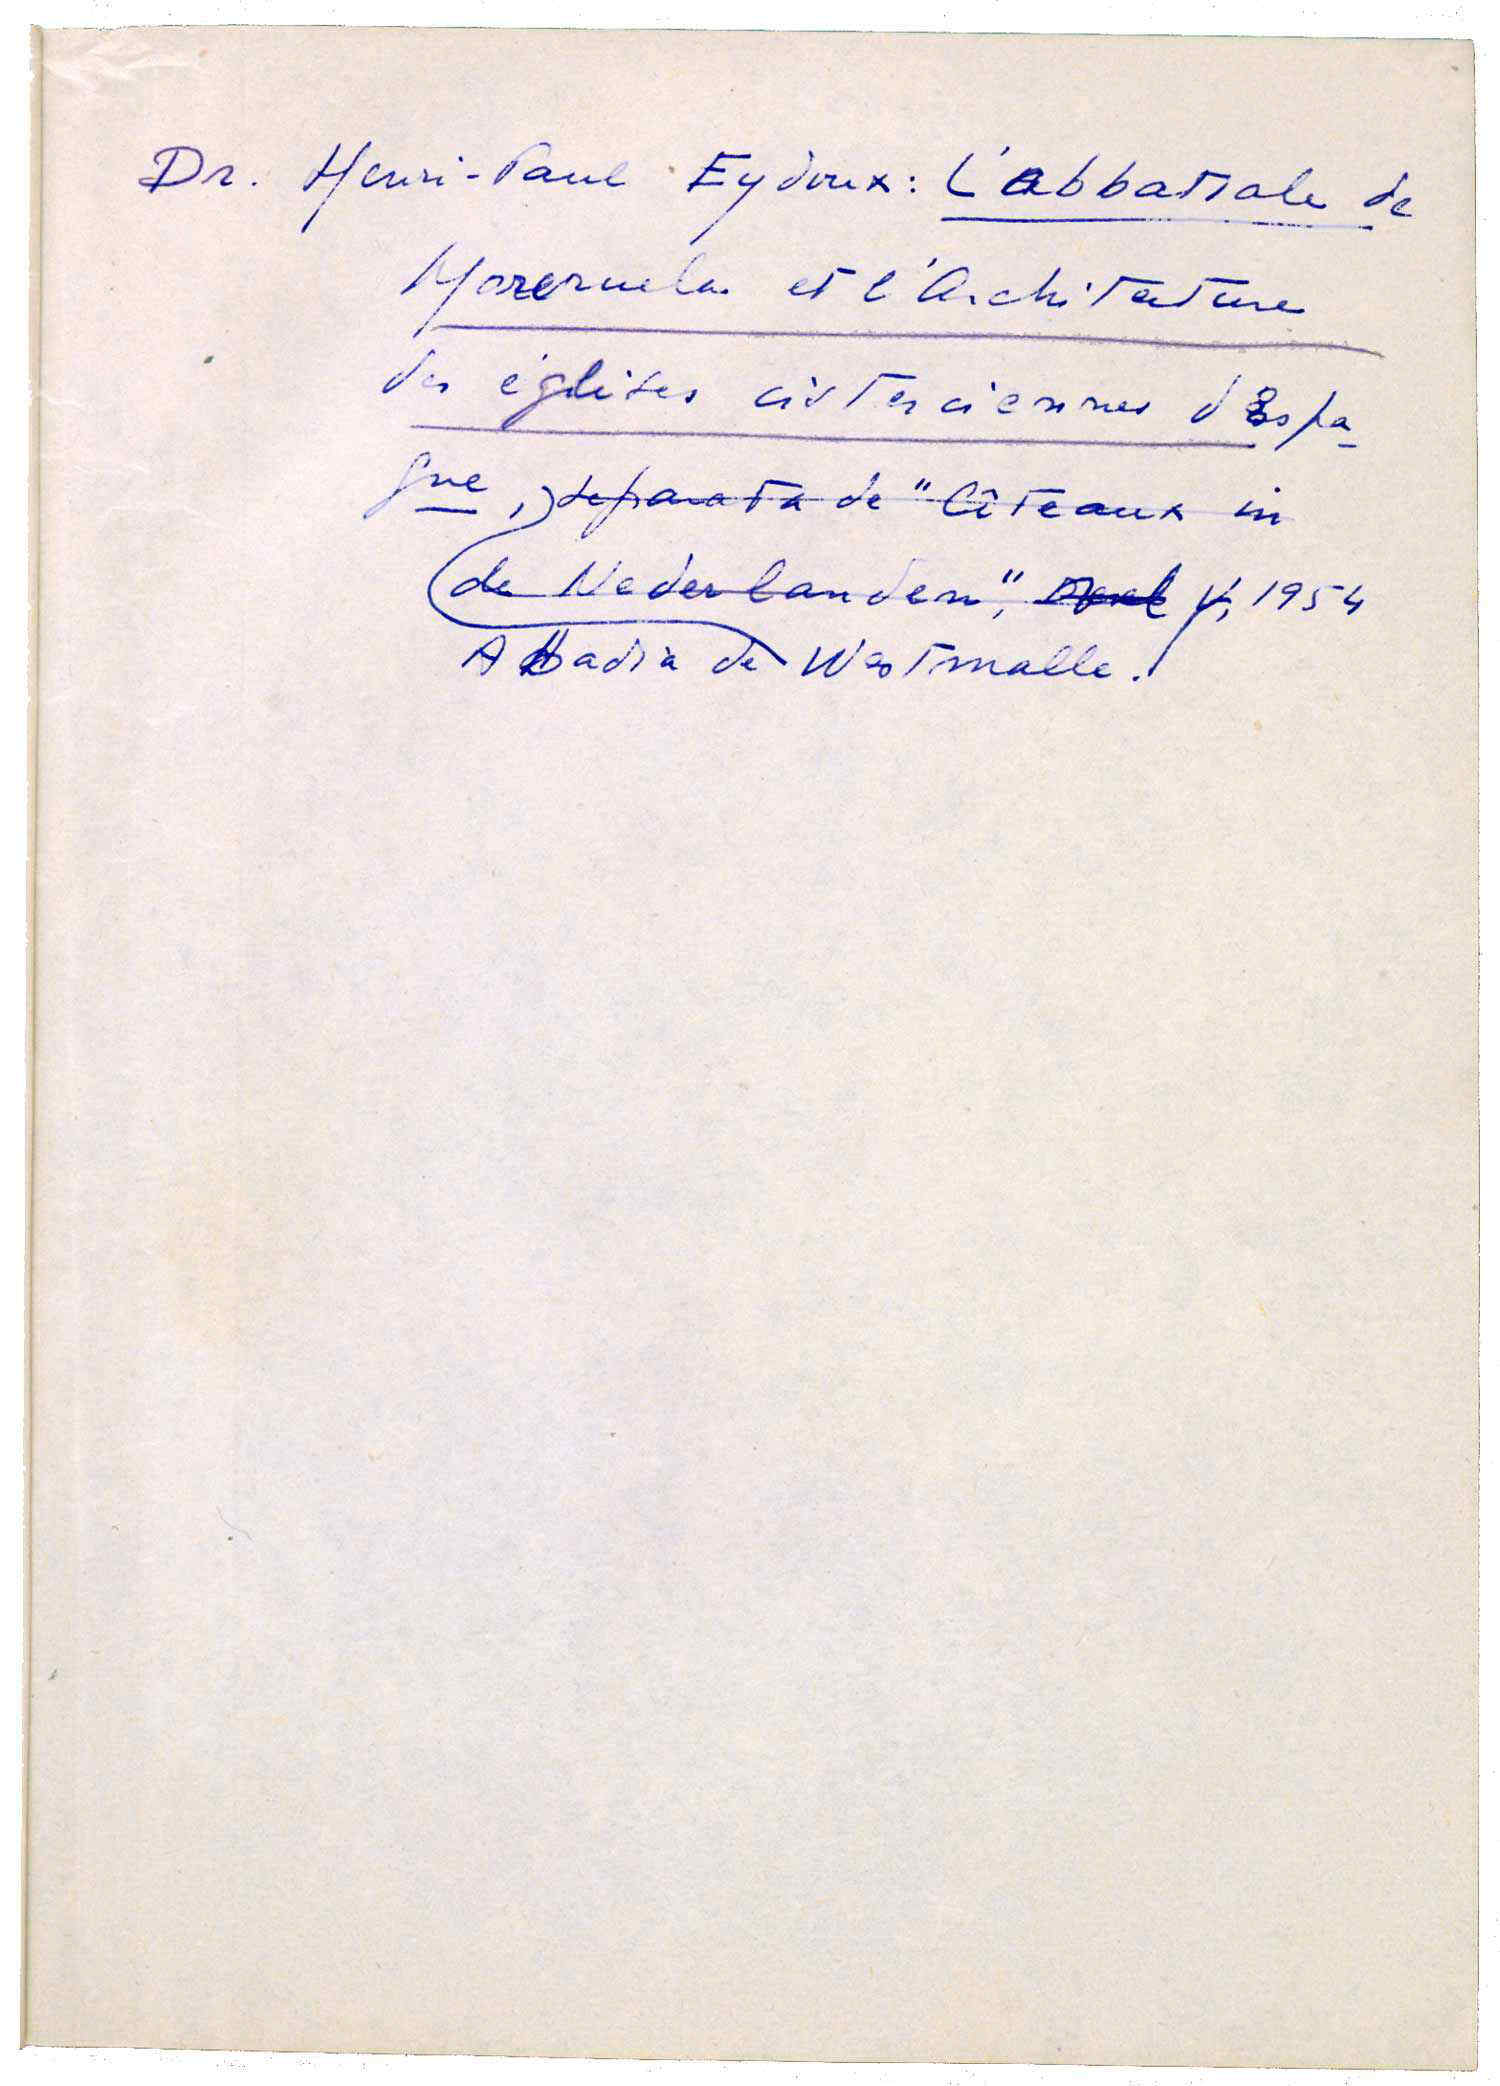 Dr. Henri-Paul Eydoux: L'abbatiale de
Moreruela et l'Architecture
des églises cisterciennes d'Espa-
gne, separata de "Cîteaux in
de Nederlanden", V, 1954
Abadia de Westmalle.